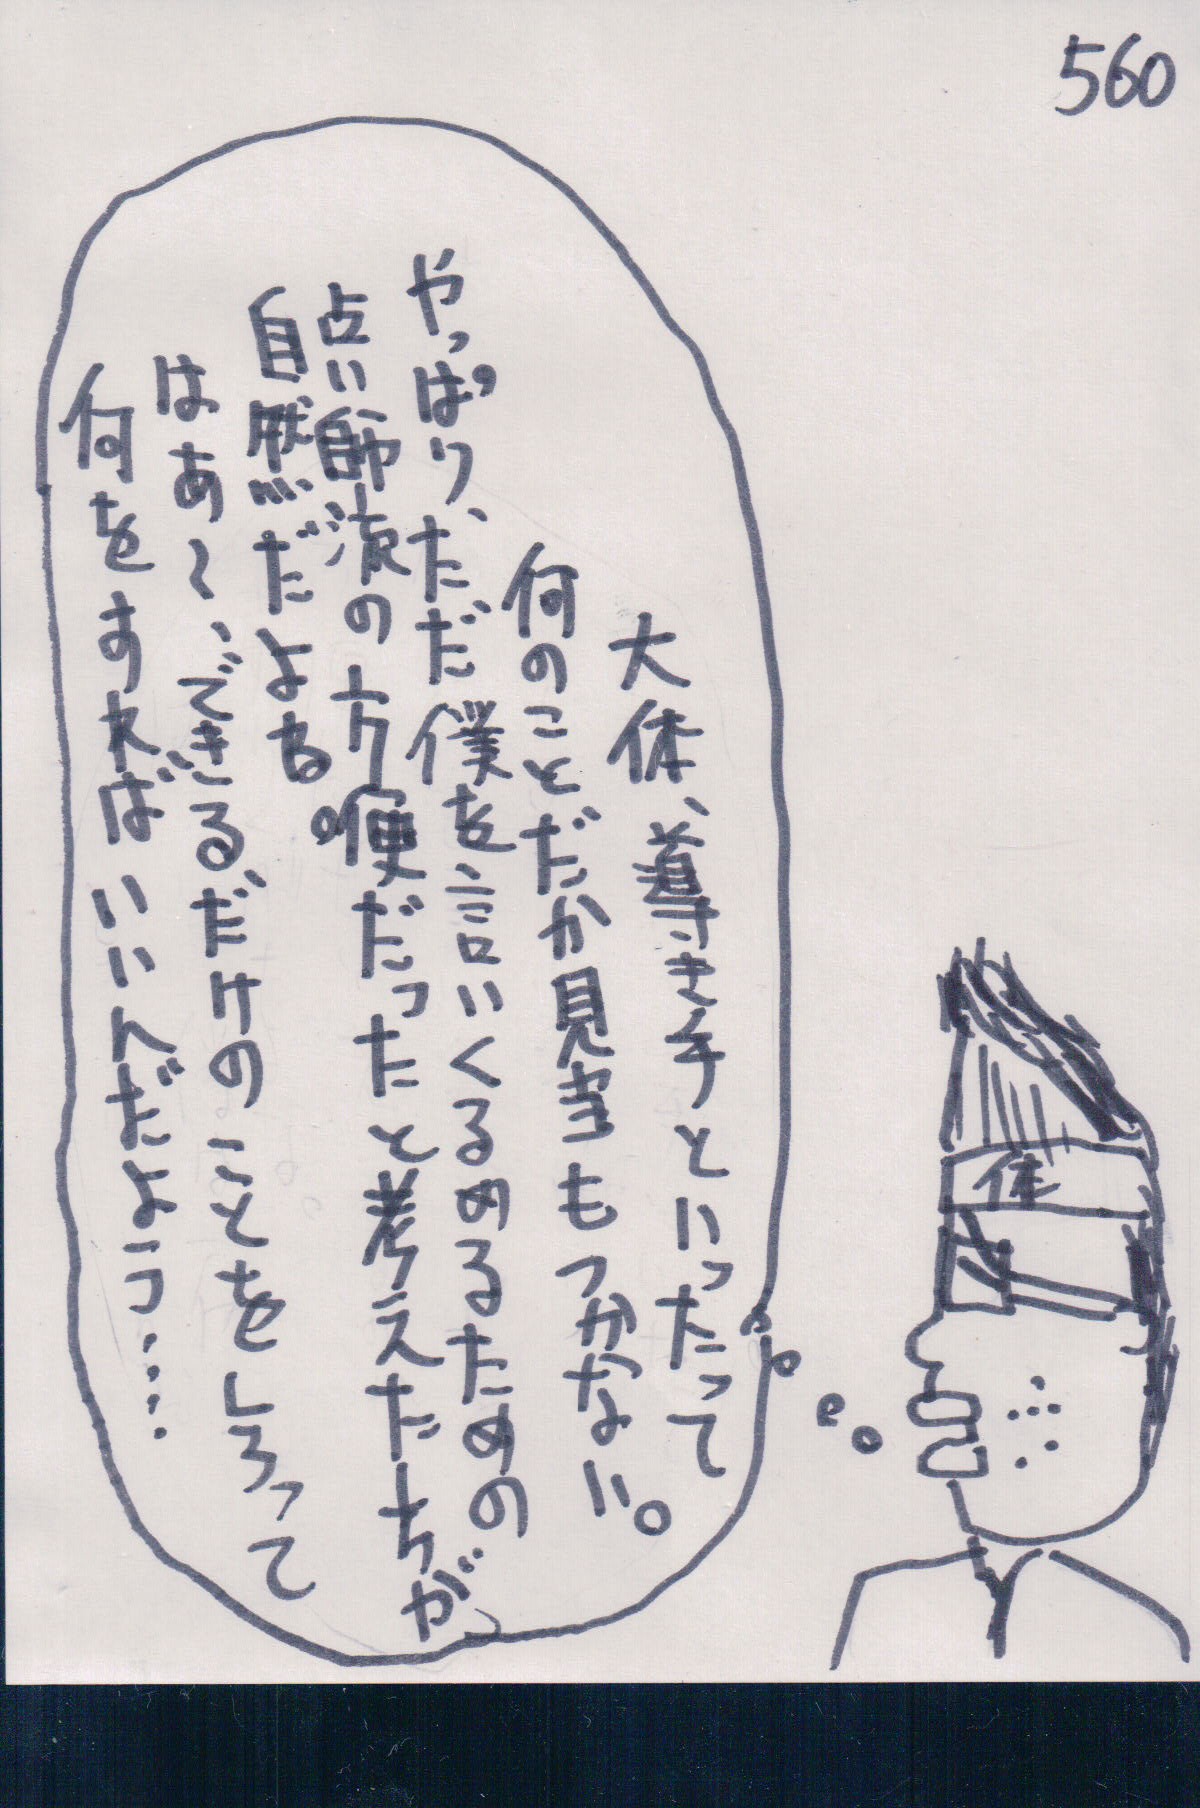 560
大体、導き手といったって
何のことだか見当もつかない。
やっぱり、ただ僕を言いくるめるための
占い師流の方便だったと考えたちが
自然だよる。
はあ〜、できるだけのことをしろって
何をすればいいんだよう・・・・
体